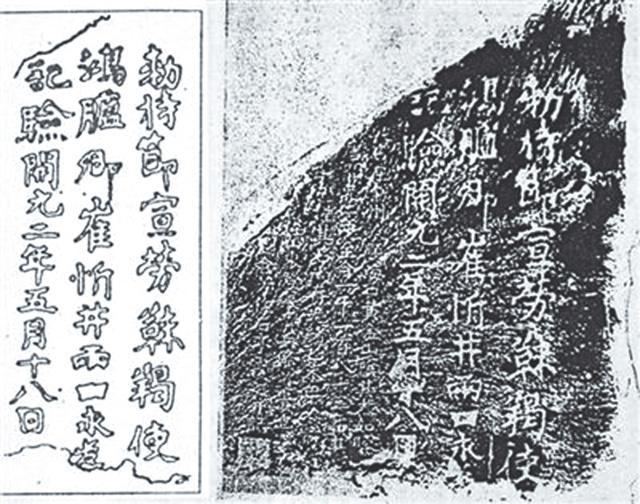 勅持節宣勞靺羯使
鴻臚卿崔忻井兩口永為
記驗開元二年五月十八日
勅持節宣勞靺羯使
鴻臚卿崔忻井兩口永
驗開元二年五月十八日